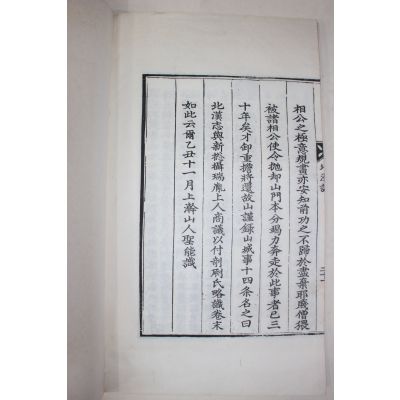 相公之極意規畫亦安知前功之不歸於盡棄耶賤僧猥
被諸相公使令抛却山門本分竭力奔走於此事者已三
十年矣才卸重擔將還故山謹錄山城事十四条名之曰
北漢志與新摠攝瑞胤上人商議以付剞劂氏略識卷末
如此云爾乙丑十一月上澣山人聖能識